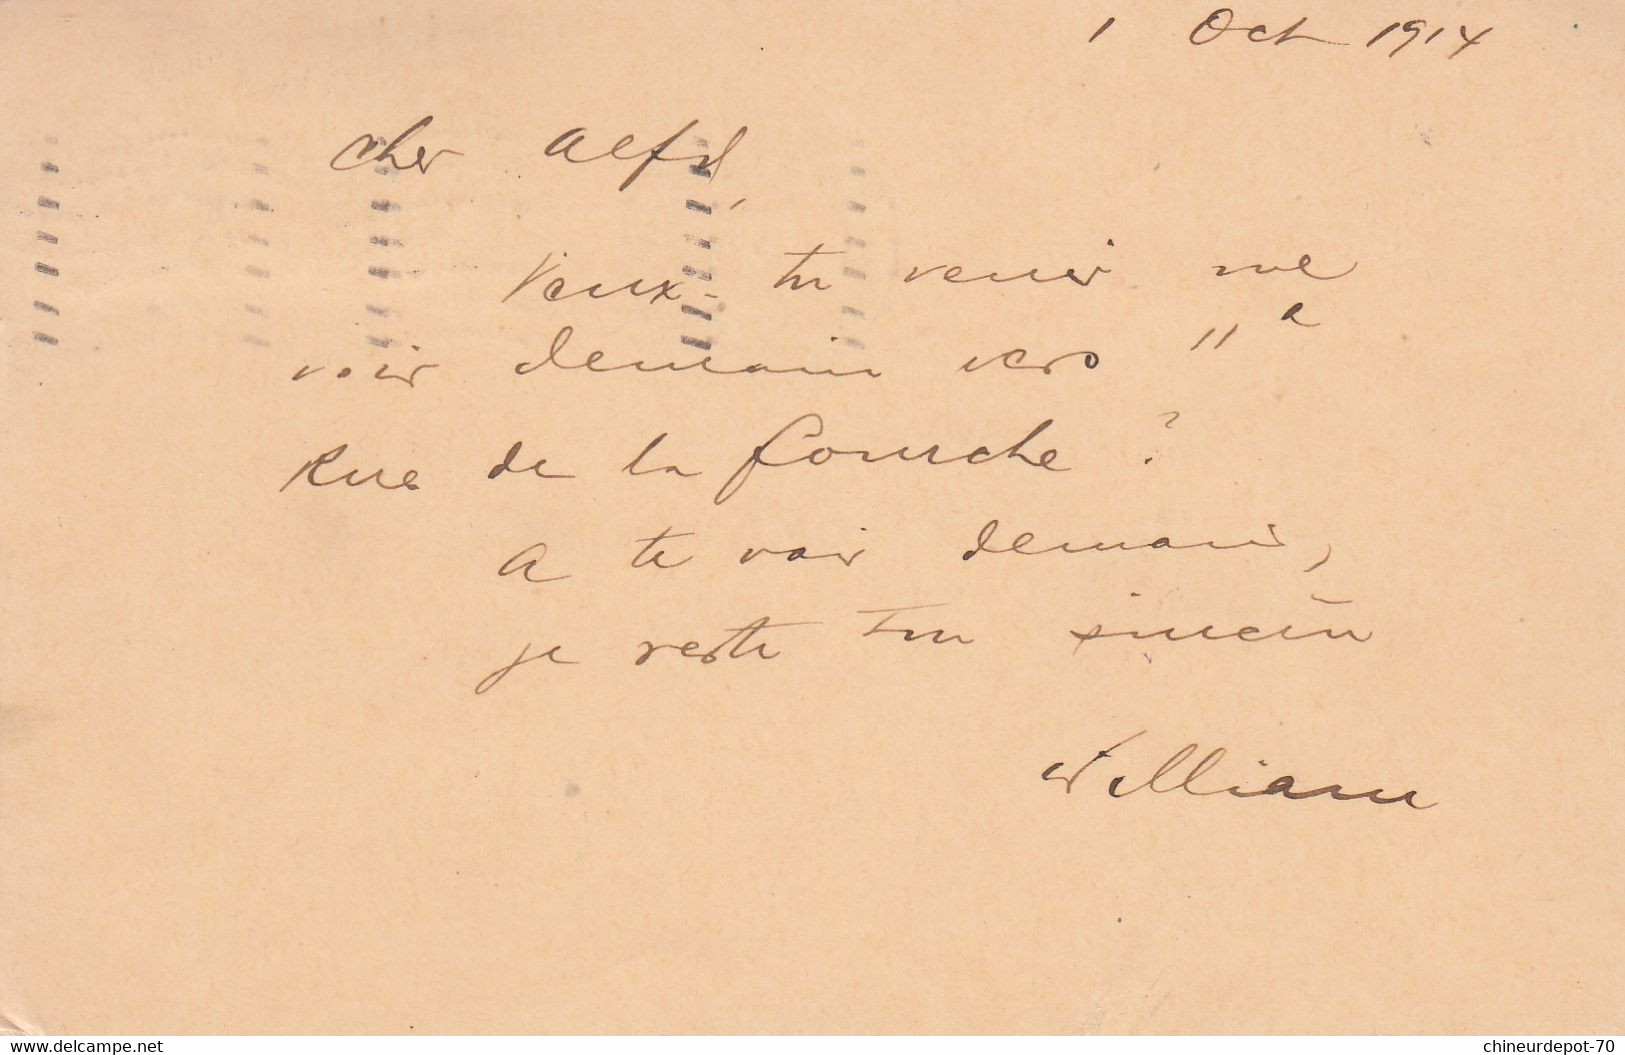 1 Oct 1914
Cher Alfd,
Veux-tu venir me
voir demain vers 11 h
Rue de la fourche ?
A te voir demain,
je reste ton sincère
William
www.delcampe.net
chineurdepot-70